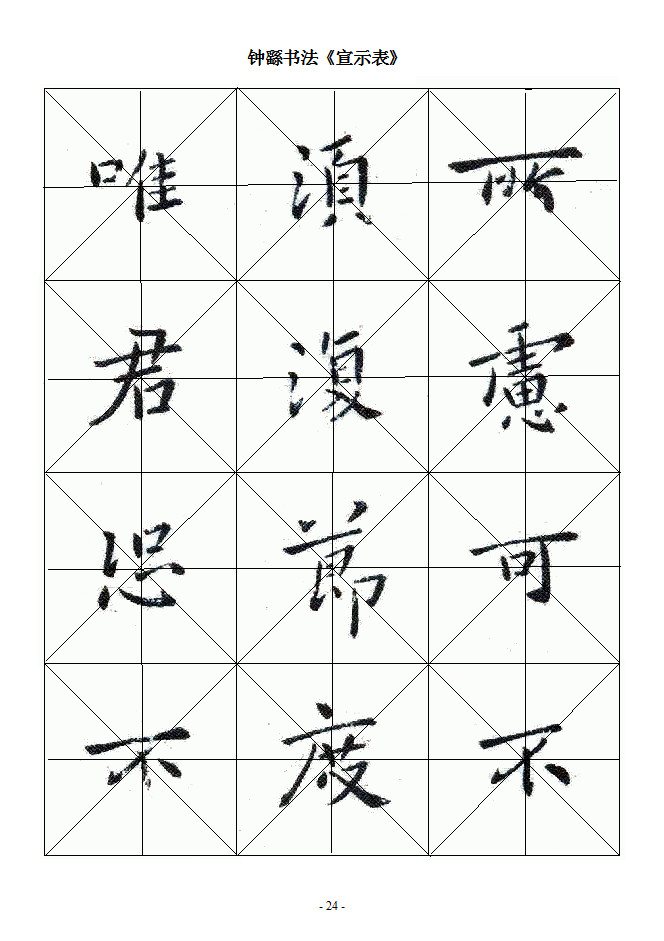 钟繇书法《宣示表》
所慮可不
須復節度
唯君恐不
- 24 -